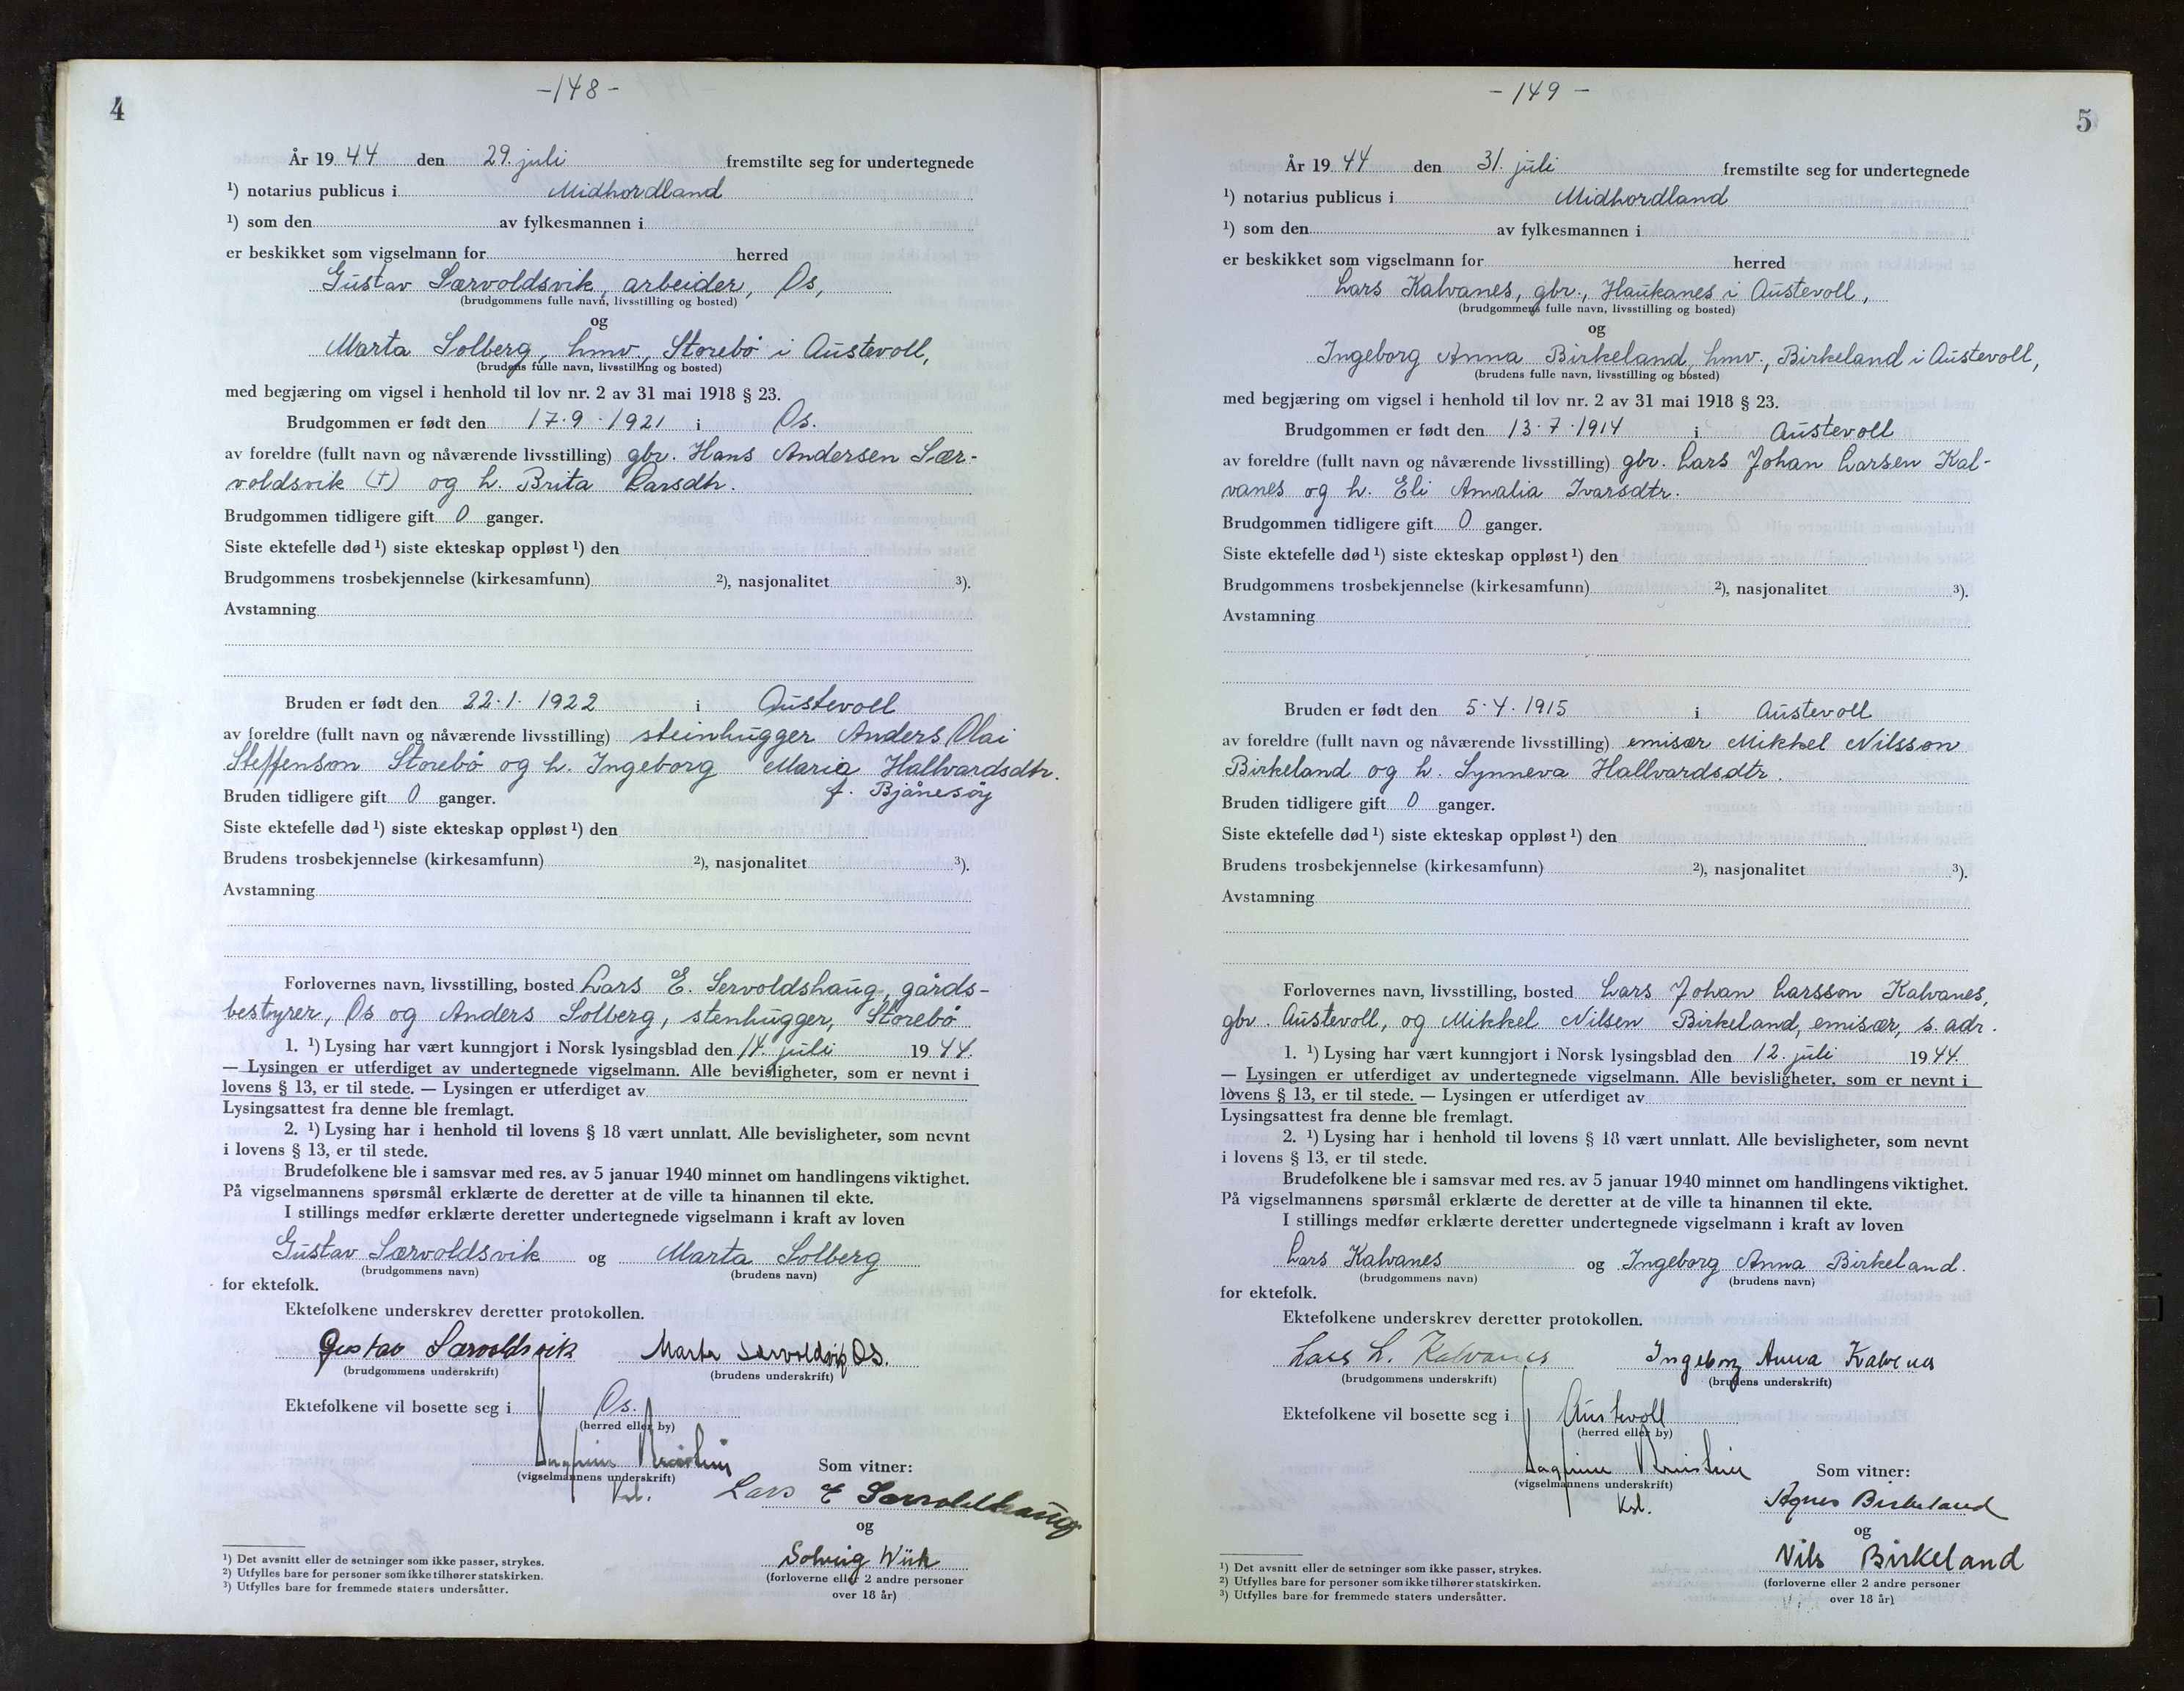 4
-148-
År 1944 den 29. juli fremstilte seg for undertegnede
¹) notarius publicus i Midhordland
¹) som den av fylkesmannen i
er beskikket som vigselmann for herred
Gustav Særvoldsvik, arbeider, Os,
(brudgommens fulle navn, livsstilling og bosted)
og
Marta Solberg, hmv., Storebø i Austevoll,
(brudens fulle navn, livsstilling og bosted)
med begjæring om vigsel i henhold til lov nr. 2 av 31 mai 1918 § 23.
Brudgommen er født den 17.9.1921 i Os.
av foreldre (fullt navn og nåværende livsstilling) gbr. Hans Andersen Sær-
voldsvik (†) og h. Brita Larsdtr.
Brudgommen tidligere gift 0 ganger.
Siste ektefelle død ¹) siste ekteskap oppløst ¹) den
Brudgommens trosbekjennelse (kirkesamfunn) ²), nasjonalitet ³).
Avstamning
Bruden er født den 22.1.1922 i Austevoll
av foreldre (fullt navn og nåværende livsstilling) steinhugger Anders Olai
Steffenson Storebø og h. Ingeborg Maria Hallvardsdtr.
Bruden tidligere gift 0 ganger. f. Bjånesøy
Siste ektefelle død ¹) siste ekteskap oppløst ¹) den
Brudens trosbekjennelse (kirkesamfunn) ²), nasjonalitet ³).
Avstamning
Forlovernes navn, livsstilling, bosted Lars E. Servoldshaug, gårds-
bestyrer, Os og Anders Solberg, stenhugger, Storebø
1. ¹) Lysing har vært kunngjort i Norsk lysingsblad den 14. juli 1944.
— Lysingen er utferdiget av undertegnede vigselmann. Alle bevisligheter, som er nevnt i
lovens § 13, er til stede. — Lysingen er utferdiget av
Lysingsattest fra denne ble fremlagt.
2. ¹) Lysing har i henhold til lovens § 18 vært unnlatt. Alle bevisligheter, som nevnt
i lovens § 13, er til stede.
Brudefolkene ble i samsvar med res. av 5 januar 1940 minnet om handlingens viktighet.
På vigselmannens spørsmål erklærte de deretter at de ville ta hinannen til ekte.
I stillings medfør erklærte deretter undertegnede vigselmann i kraft av loven
Gustav Særvoldsvik og Marta Solberg
(brudgommens navn) (brudens navn)
for ektefolk.
Ektefolkene underskrev deretter protokollen.
Gustav Særvoldsvik Marta Særvoldsvik Os.
(brudgommens underskrift) (brudens underskrift)
Ektefolkene vil bosette seg i Os.
(herred eller by)
(vigselmannens underskrift) Som vitner:
Lars E Særvoldshaug
og
Solveig Wiik
(forloverne eller 2 andre personer
over 18 år)
¹) Det avsnitt eller de setninger som ikke passer, strykes.
²) Utfylles bare for personer som ikke tilhører statskirken.
³) Utfylles bare for fremmede staters undersåtter.
-149-
5
År 1944 den 31. juli fremstilte seg for undertegnede
¹) notarius publicus i Midhordland
¹) som den av fylkesmannen i
er beskikket som vigselmann for herred
Lars Kalvanes, gbr., Haukanes i Austevoll,
(brudgommens fulle navn, livsstilling og bosted)
og
Ingeborg Anna Birkeland, hmv., Birkeland i Austevoll,
(brudens fulle navn, livsstilling og bosted)
med begjæring om vigsel i henhold til lov nr. 2 av 31 mai 1918 § 23.
Brudgommen er født den 13.7.1914 i Austevoll
av foreldre (fullt navn og nåværende livsstilling) gbr. Lars Johan Larsen Kal-
vanes og h. Eli Amalia Ivarsdtr.
Brudgommen tidligere gift 0 ganger.
Siste ektefelle død ¹) siste ekteskap oppløst ¹) den
Brudgommens trosbekjennelse (kirkesamfunn) ²), nasjonalitet ³).
Avstamning
Bruden er født den 5.4.1915 i Austevoll
av foreldre (fullt navn og nåværende livsstilling) emisær Mikkel Nilsson
Birkeland og h. Synneva Hallvardsdtr.
Bruden tidligere gift 0 ganger.
Siste ektefelle død ¹) siste ekteskap oppløst ¹) den
Brudens trosbekjennelse (kirkesamfunn) ²), nasjonalitet ³).
Avstamning
Forlovernes navn, livsstilling, bosted Lars Johan Larsson Kalvanes,
gbr. Austevoll, og Mikkel Nilsen Birkeland, emisær, s. adr.
1. ¹) Lysing har vært kunngjort i Norsk lysingsblad den 12. juli 1944.
— Lysingen er utferdiget av undertegnede vigselmann. Alle bevisligheter, som er nevnt i
lovens § 13, er til stede. — Lysingen er utferdiget av
Lysingsattest fra denne ble fremlagt.
2. ¹) Lysing har i henhold til lovens § 18 vært unnlatt. Alle bevisligheter, som nevnt
i lovens § 13, er til stede.
Brudefolkene ble i samsvar med res. av 5 januar 1940 minnet om handlingens viktighet.
På vigselmannens spørsmål erklærte de deretter at de ville ta hinannen til ekte.
I stillings medfør erklærte deretter undertegnede vigselmann i kraft av loven
Lars Kalvanes og Ingeborg Anna Birkeland.
(brudgommens navn) (brudens navn)
for ektefolk.
Ektefolkene underskrev deretter protokollen.
Lars L. Kalvanes Ingeborg Anna Kalvenes
(brudgommens underskrift) (brudens underskrift)
Ektefolkene vil bosette seg i Austevoll
(herred eller by)
(vigselmannens underskrift) Som vitner:
Kst. Agnes Birkeland
og
Nils Birkeland
(forloverne eller 2 andre personer
over 18 år)
¹) Det avsnitt eller de setninger som ikke passer, strykes.
²) Utfylles bare for personer som ikke tilhører statskirken.
³) Utfylles bare for fremmede staters undersåtter.